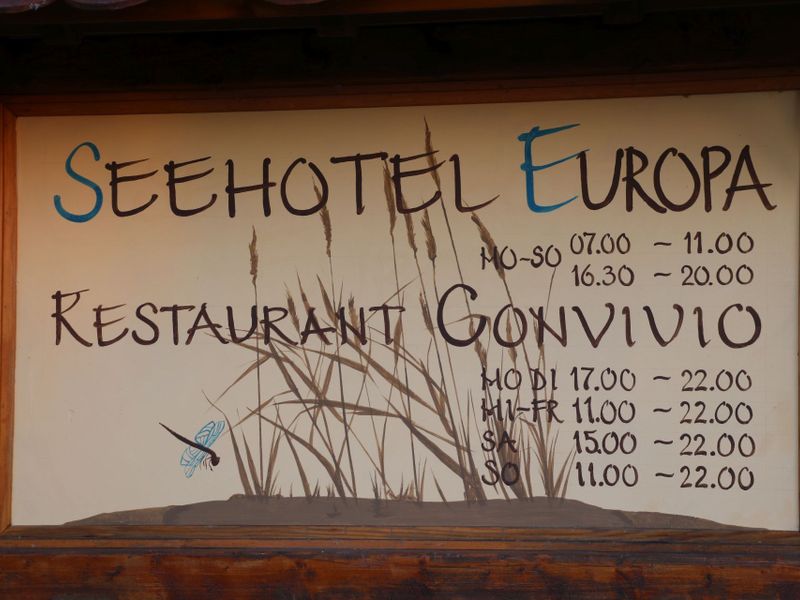 SEEHOTEL EUROPA
MO-SO 07.00 - 11.00
16.30 - 20.00
RESTAURANT CONVIVIO
MO DI 17.00 - 22.00
MI-FR 11.00 - 22.00
SA 15.00 - 22.00
SO 11.00 - 22.00